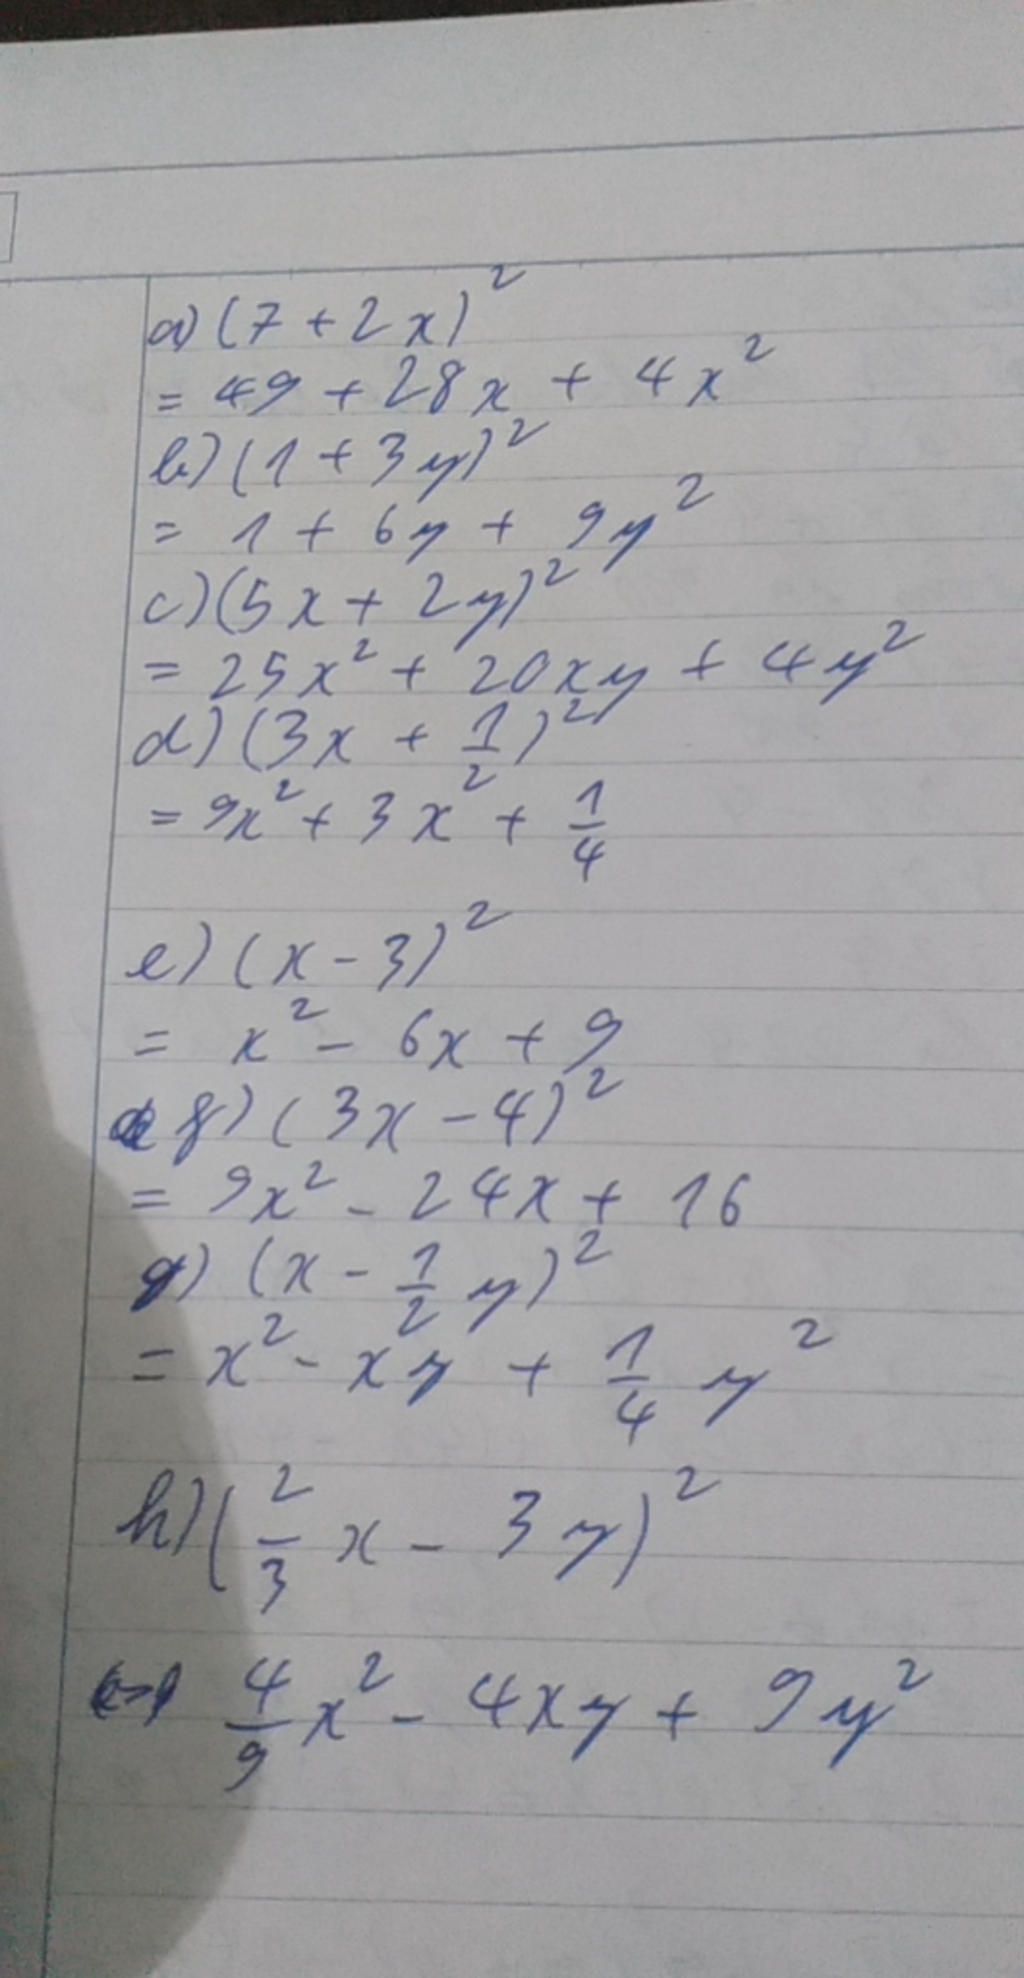 a) (7 + 2x)²
= 49 + 28x + 4x²
b) (1 + 3y)²
= 1 + 6y + 9y²
c) (5x + 2y)²
= 25x² + 20xy + 4y²
d) (3x + 1/2)²
= 9x² + 3x² + 1/4
e) (x - 3)²
= x² - 6x + 9
f) (3x - 4)²
= 9x² - 24x + 16
g) (x - 1/2 y)²
= x² - xy + 1/4 y²
h) (2/3 x - 3y)²
4/9 x² - 4xy + 9y²